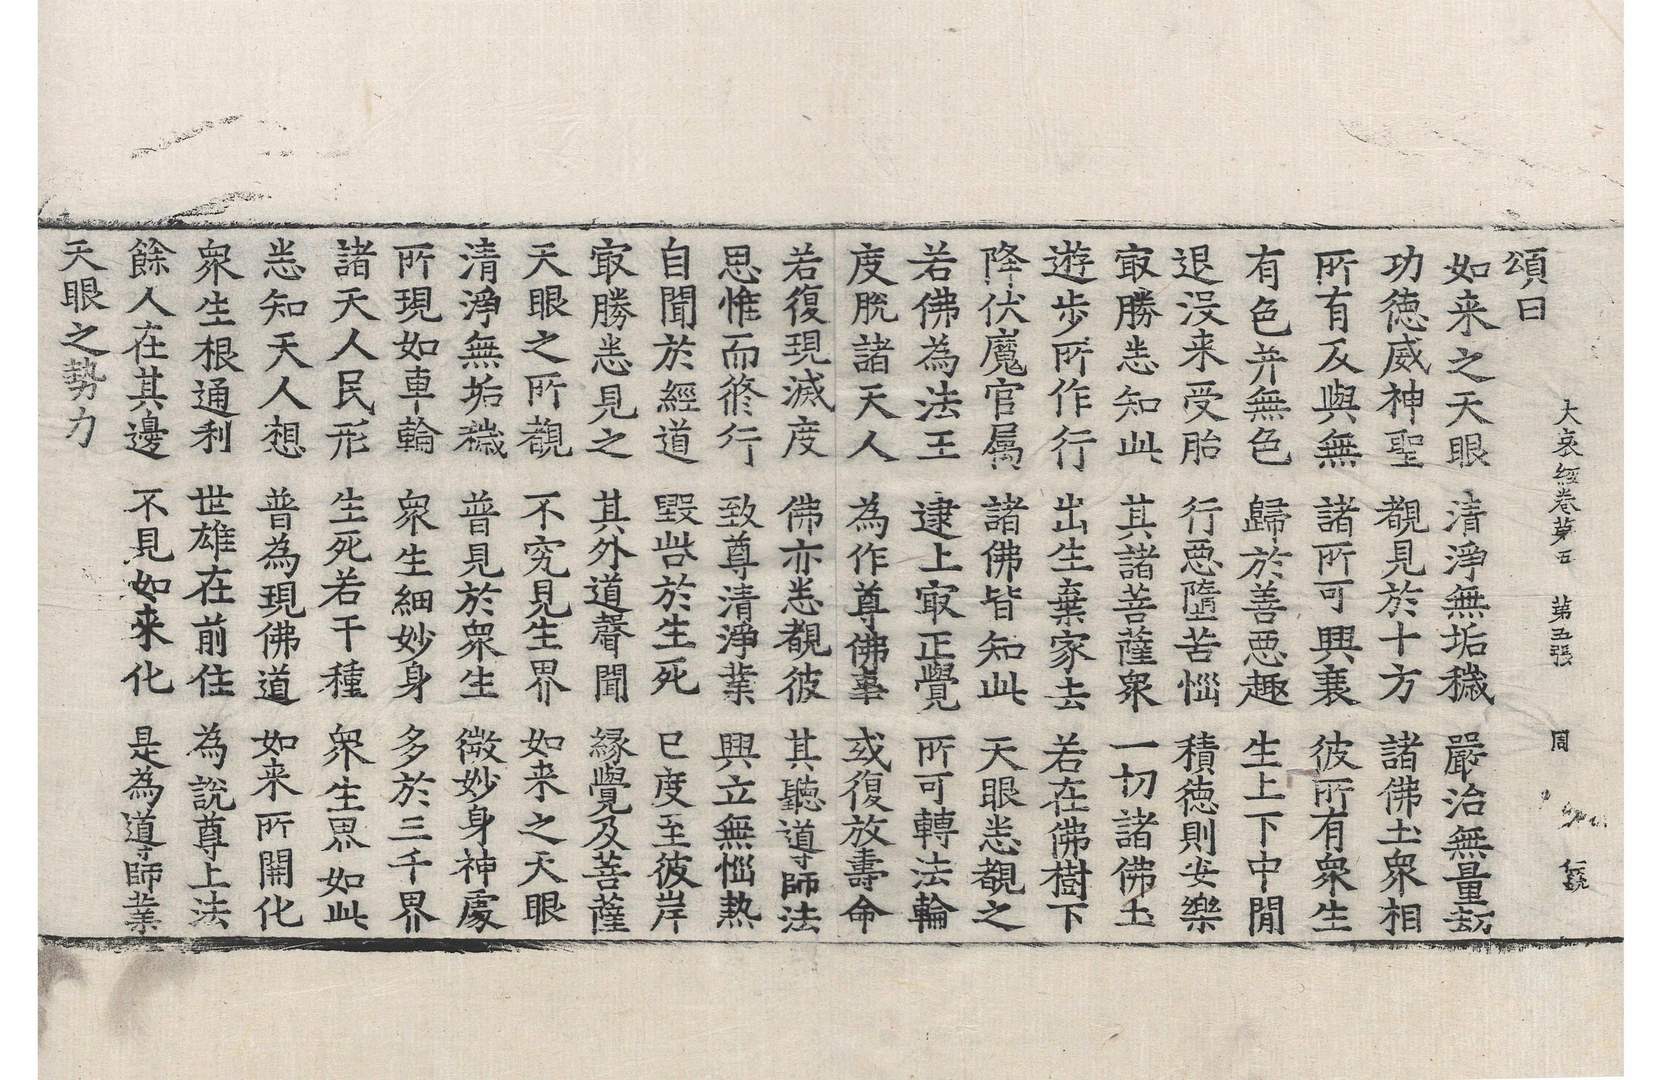 大哀經卷第五 第五張 周
頌曰
如来之天眼 清淨無垢穢 嚴治無量劫
功德威神聖 覩見於十方 諸佛土衆相
所有及與無 諸所可興衰 彼所有衆生
有色并無色 歸於善惡趣 生上下中間
退没来受胎 行惡墮苦惱 積德則安樂
㝡勝悉知此 其諸菩薩衆 一切諸佛土
遊步所作行 出生棄家去 若在佛樹下
降伏魔官属 諸佛皆知此 天眼悉覩之
若佛為法王 逮上㝡正覺 所可轉法輪
度脫諸天人 為作尊佛事 或復放壽命
若復現滅度 佛亦悉覩彼 其聽導師法
思惟而俢行 致尊清淨業 興立無惱熱
自聞於經道 毀呰於生死 已度至彼岸
㝡勝悉見之 其外道聲聞 緣覺及菩薩
天眼之所覩 不究見生界 如来之天眼
清淨無垢穢 普見於衆生 微妙身神處
所現如車輪 衆生細妙身 多於三千界
諸天人民形 生死若干種 衆生界如此
悉知天人想 普為現佛道 如来所開化
衆生根通利 世雄在前住 為說尊上法
餘人在其邊 不見如來化 是為導師業
天眼之勢力